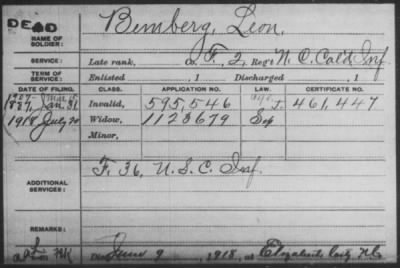 DEAD
NAME OF SOLDIER:
Bemberg, Leon.
SERVICE:
Late rank, Co. F, 2, Reg't N. C. Col'd Inf.
TERM OF SERVICE:
Enlisted , 1 Discharged , 1
DATE OF FILING. CLASS. APPLICATION NO. LAW. CERTIFICATE NO.
1887, Jan. 31 Invalid, 595,546 J. 461,447
1918 July 20 Widow, 1123679 Sep
Minor,
ADDITIONAL SERVICES:
F. 36, U. S. C. Inf.
REMARKS:
Died June 9, 1918, at Elizabeth City N.C.